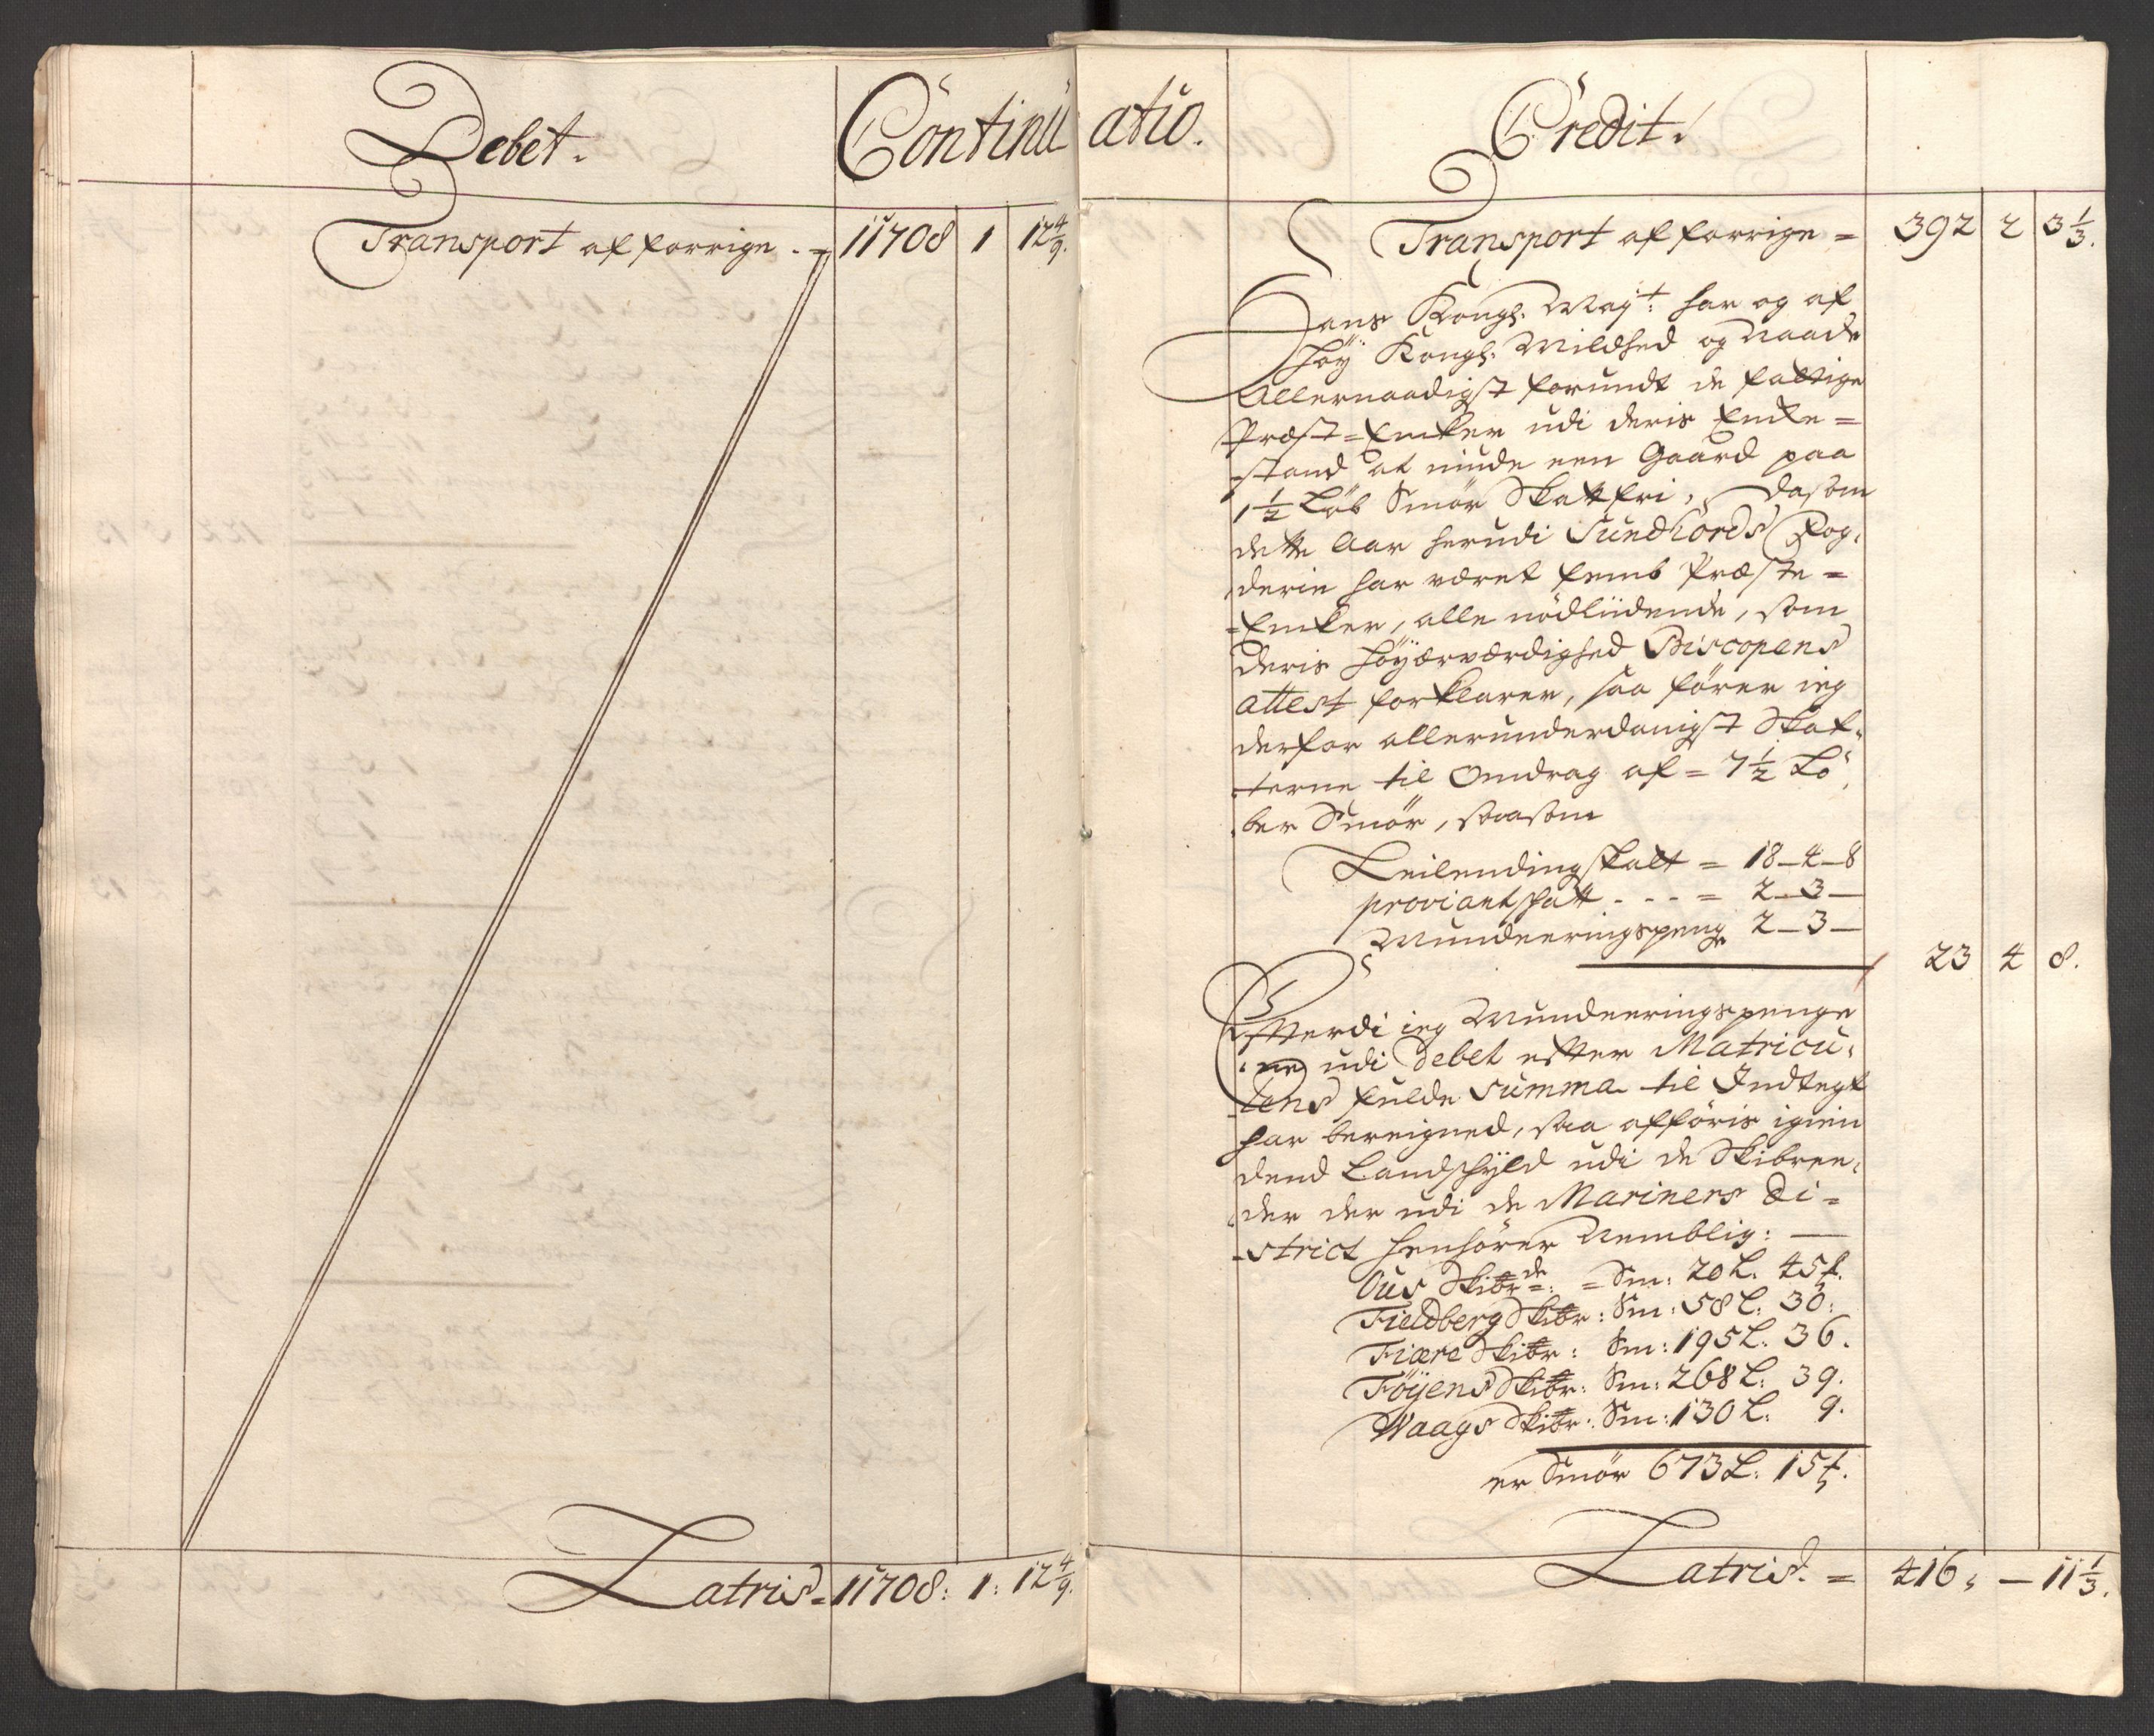 Debet.
Continu
Transport af forrige . = 11708 1 12 4/9.
Latris = 11708: 1: 12 4/9.
atio.
Credit.
Transport af forrige = 392 2 3 1/3.
Hans Kongl. Mayt: har og af
høy Kongl. Mildhed og Naade
Allernaadigst forundt de fattige
Præst=Encker udi deris Encke=
=stand at niude een Gaard paa
1 1/2 Løb Smør Skatt fri, dasom
dette Aar herudi Sundhords Fog,
derie har været femb Præste=
=Encker, alle nødliidende, som
deris Høyærværdighed Biscopens
attest forklarer, saa fører ieg
derfor allerunderdanigst Skat,
terne til Omdrag af = 7 1/2 Lø,
ber Smør, saasom
Leilendingskatt = 18-4-8
proviantskatt - - - = 2-3-
Mundeeringspeng 2-3-
23 4 8.
Efterdi ieg Mundeeringspenge
,ne udi Debet efter Matricu,
lens fulde Summa til Indtegt
har bereigned, saa afføris igien
dend Landskyld udi de Skibree,
der der udi de Mariners Di=
=strict henhører Nemblig: —
Ous Skibrde: = Sm: 20 L. 45 f.
Fieldberg Skibr: Sm: 58 L: 30:
Fiære Skibr: Sm: 195 L. 36.
Føyens Skibr: Sm: 268 L: 39.
Waags Skibr: Sm: 130 L. 9.
er Smør 673 L: 15 f.
Latris. = 416, — 11 1/3.